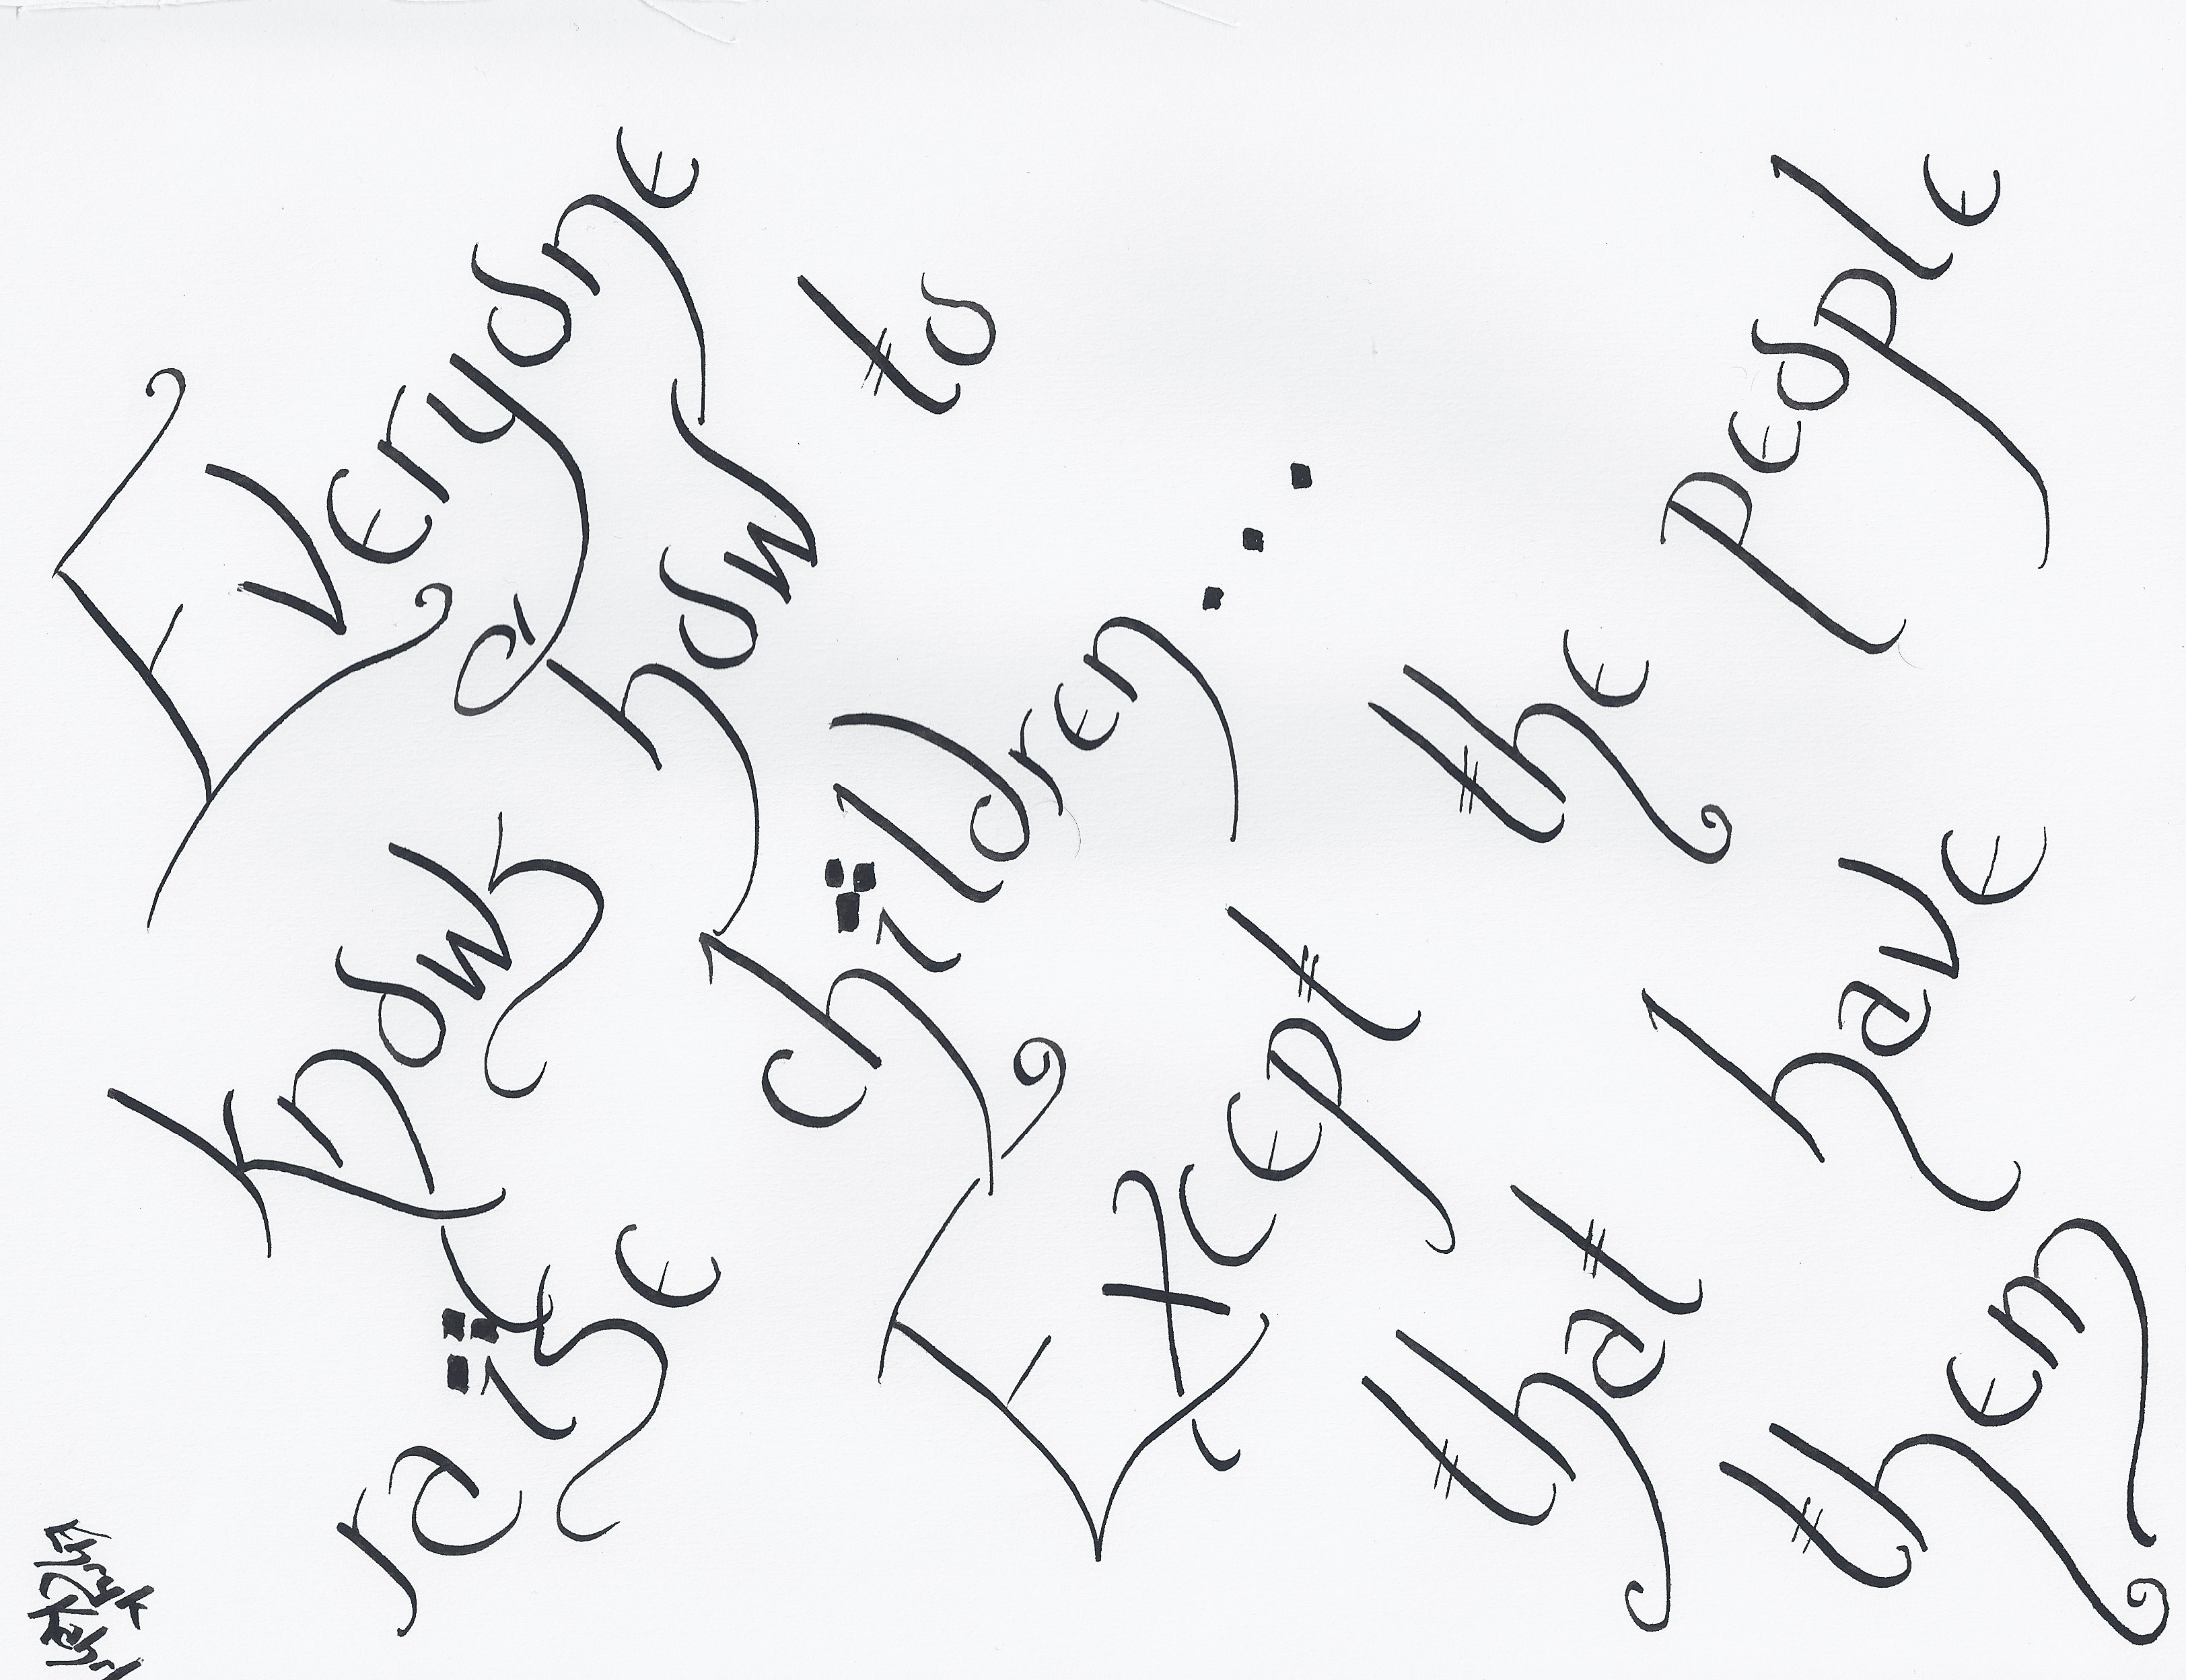 Everyone
knows how to
raise children...
Except the people
that have
them